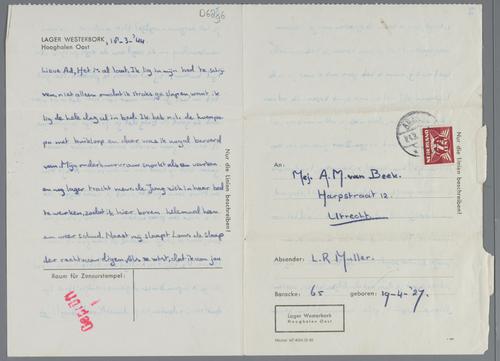 D6286
LAGER WESTERBORK, 18-3-'44
Hooghalen Oost
Lieve Ad, Het is al laat. Ik lig in mijn bed te schrij
ven, niet alleen omdat ik straks ga slapen, want ik
lig de hele dag al in bed. Ik heb n.l. de
pa met buikloop en daar was ik nogal beroerd
van. Mijn onderbuurvrouw snorkt als een varken
en nog lager tracht mevr. de Jong zich in haar bed
te werken, zodat ik hier boven helemaal heen
en weer schud. Naast mij slaapt Lous de slaap
der rechtvaardigen. Als je wist, dat ik van jou
Raum für Zensurstempel:
Geprüft
Nur die Linien beschreiben!
NEDERLAND
7½ CENT
Nur die Linien beschreiben!
An:
Mej. A.M. van Beek.
Harpstraat 12.
Utrecht.
Absender: L.R. Muller.
Baracke: 65 geboren: 19-4-'27.
Lager Westerbork
Hooghalen Oost